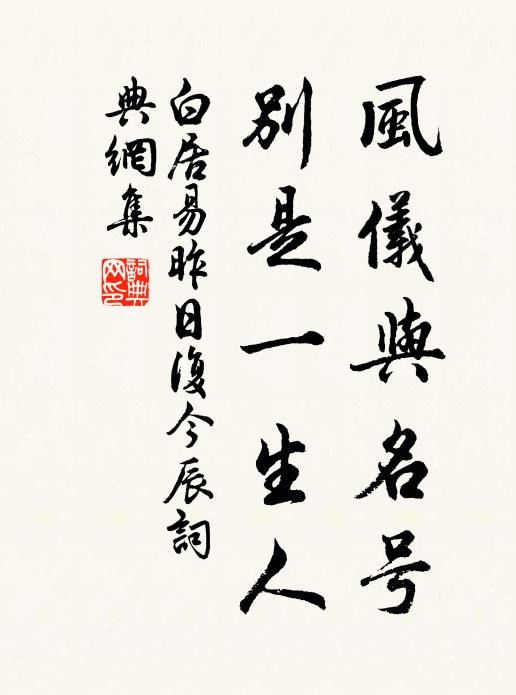 風儀與名号
別是一生人
白居易昨日復今辰詞
典網集
詞典
网印